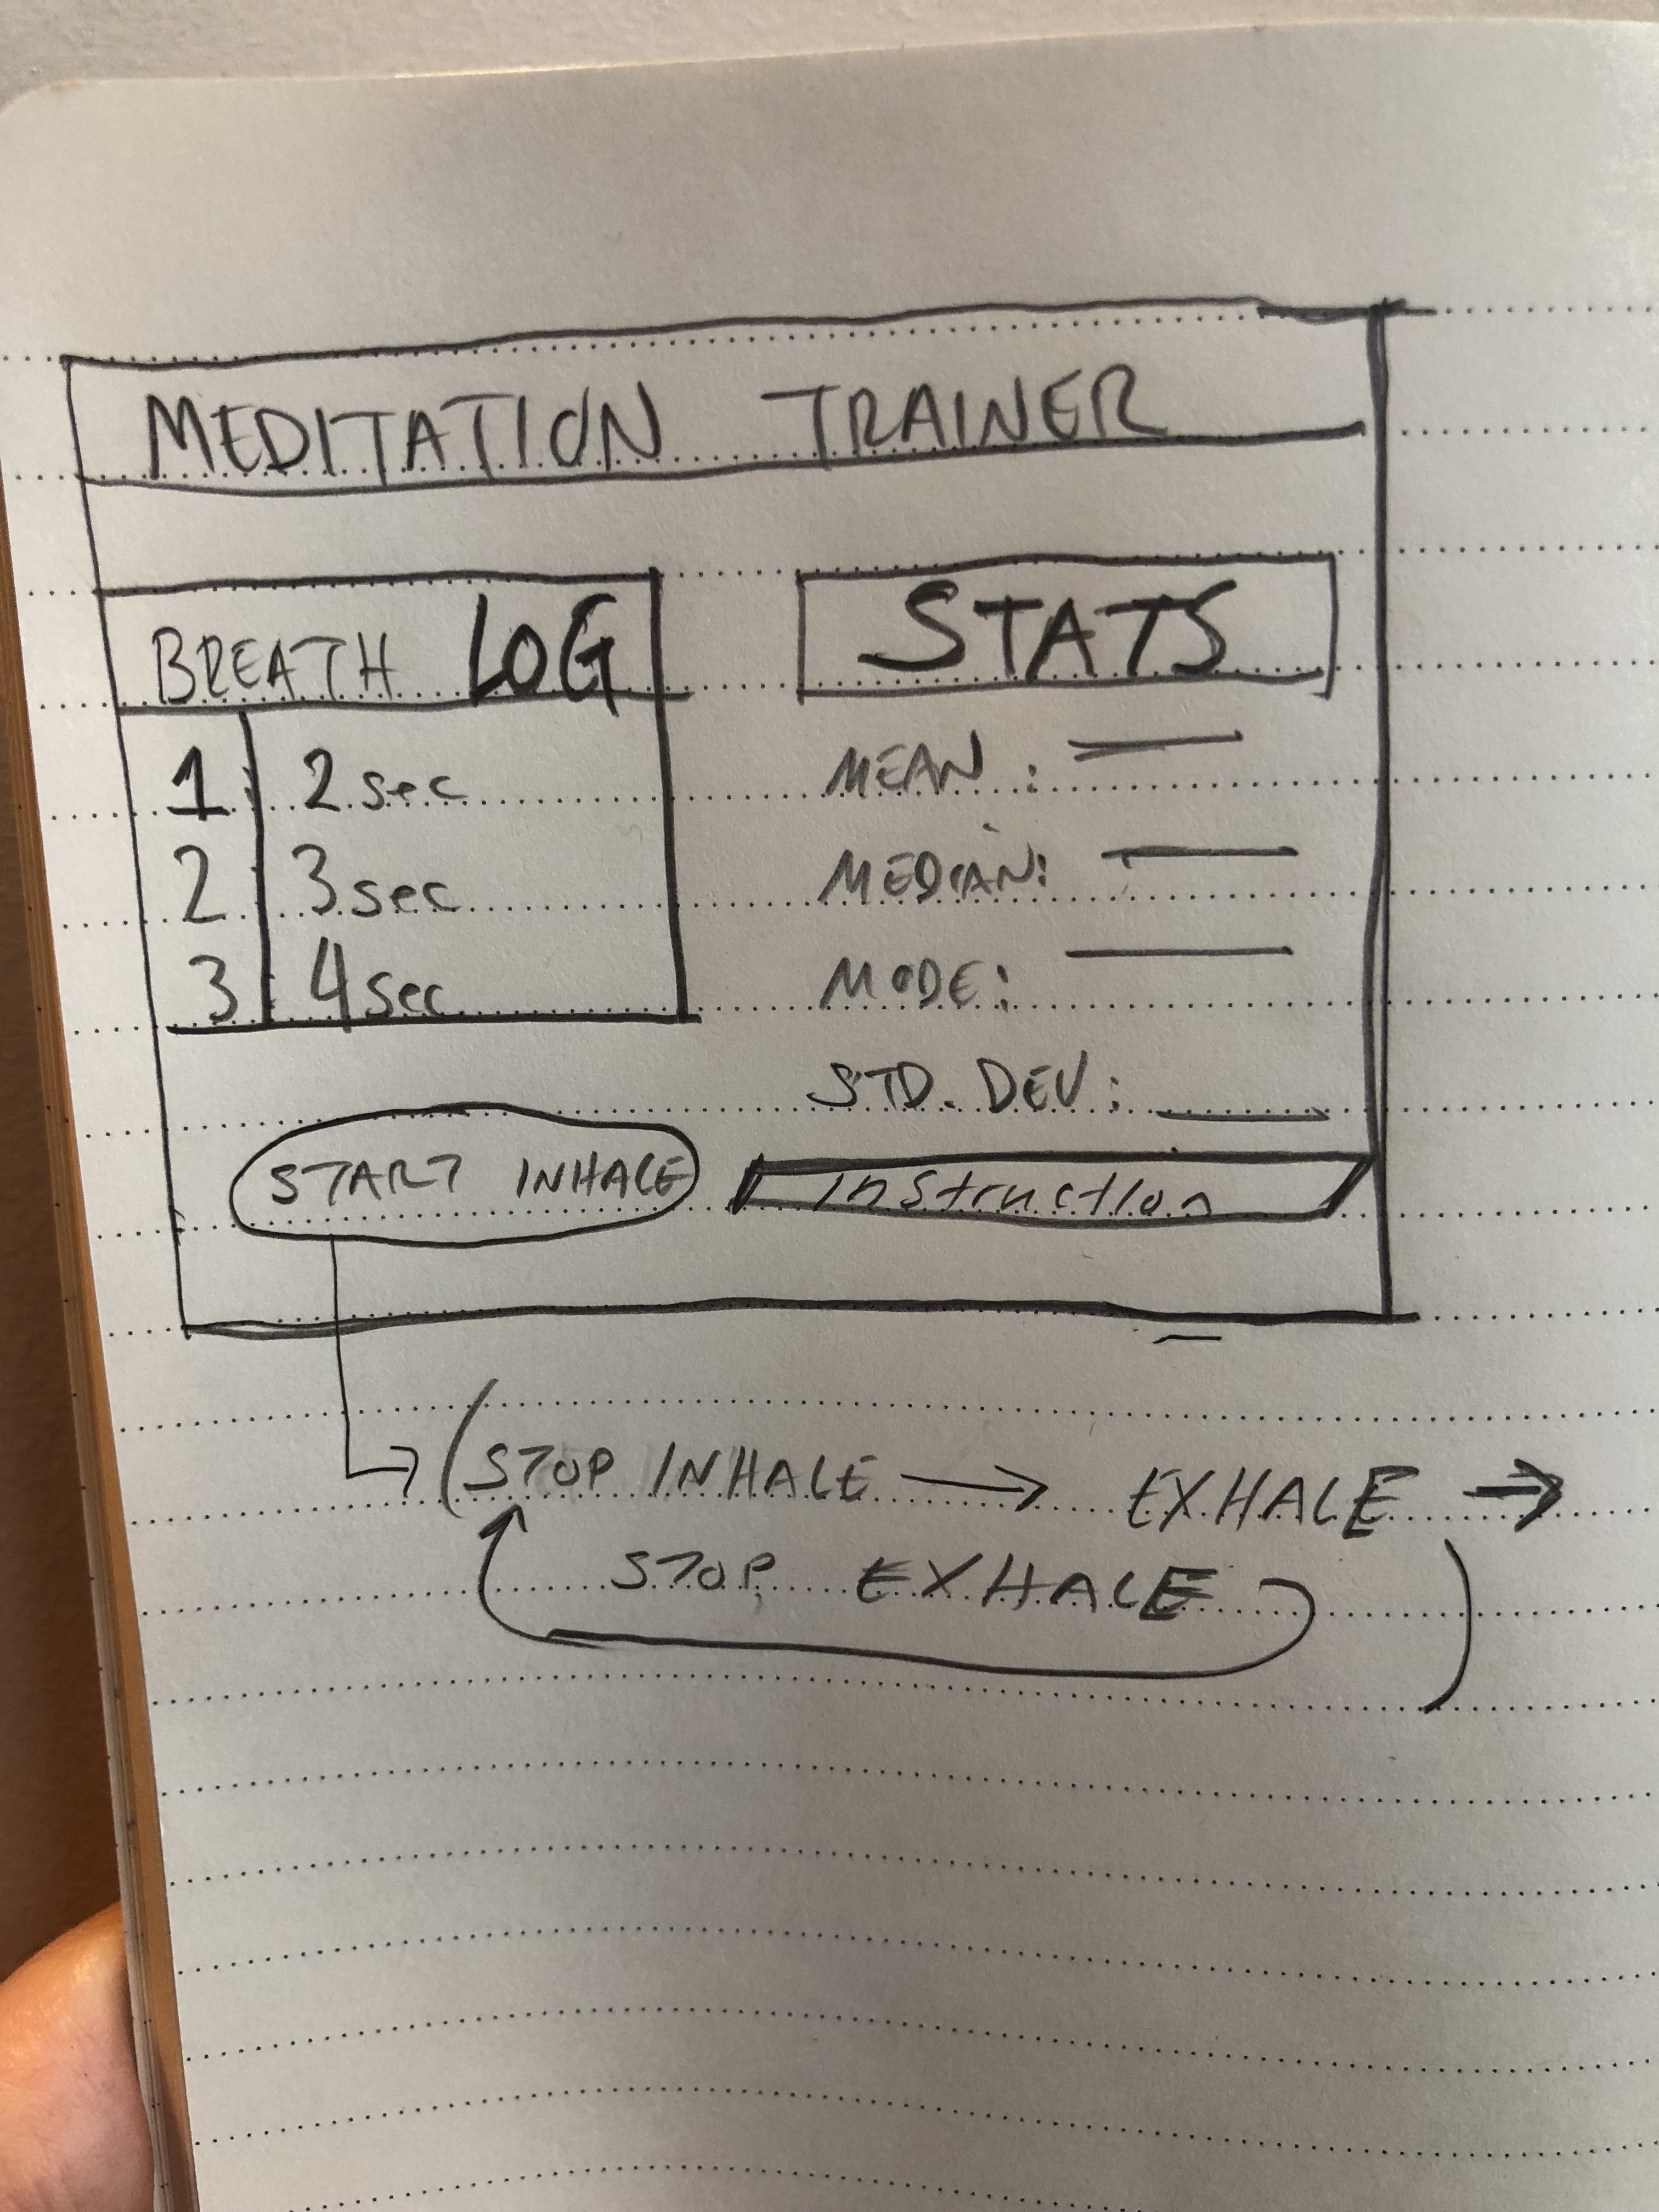 MEDITATION TRAINER
BREATH LOG
1 2 sec
2 3 sec
3 4 sec
STATS
MEAN :
MEDIAN:
MODE:
STD. DEV :
START INHALE
Instruction
(STOP INHALE → EXHALE →
STOP EXHALE )